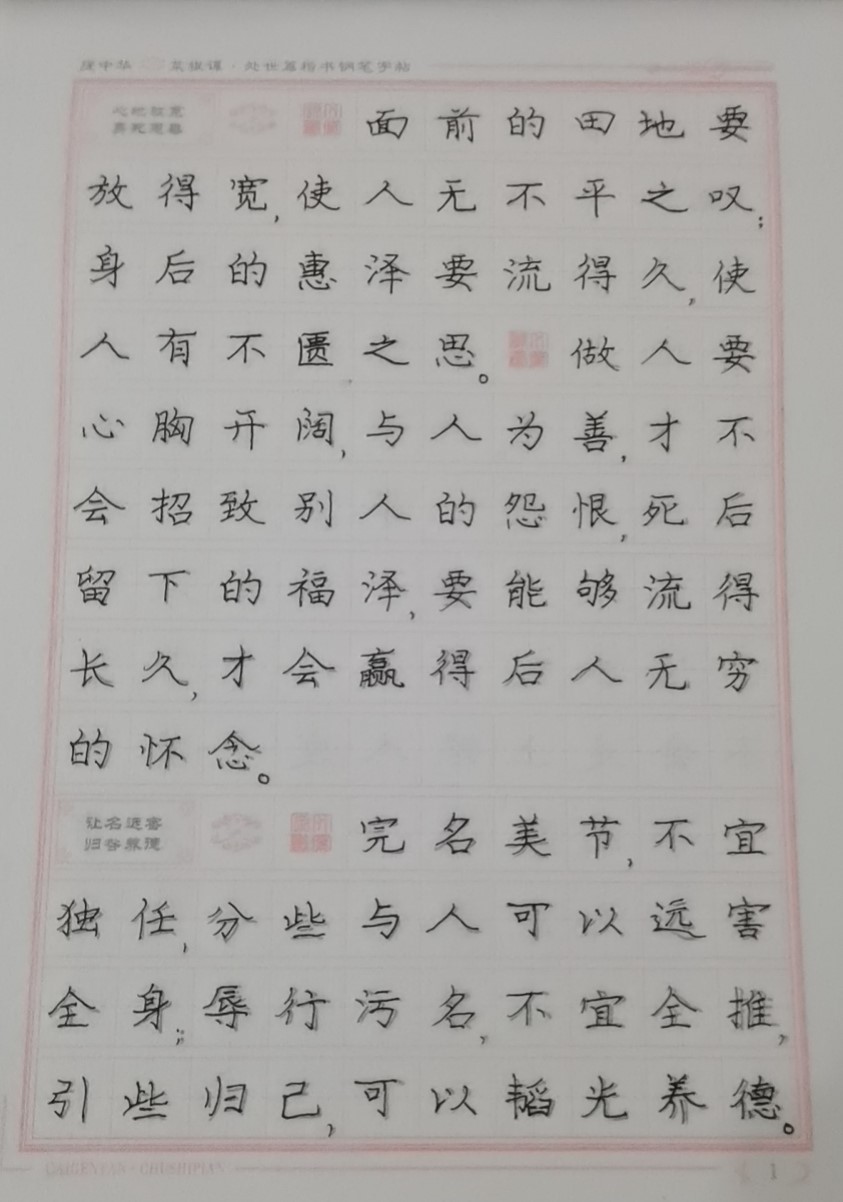 庞中华 菜根谭·处世篇楷书钢笔字帖
心地放宽
面前的田地要
放得宽,使人无不平之叹;
身后的惠泽要流得久,使
人有不匮之思。做人要
心胸开阔,与人为善,才不
会招致别人的怨恨,死后
留下的福泽,要能够流得
长久,才会赢得后人无穷
的怀念。
让名远害
归咎养德
完名美节,不宜
独任,分些与人可以远害
全身;辱行污名,不宜全推,
引些归己,可以韬光养德。
CAIGENTAN·CHUSHIPIAN
1